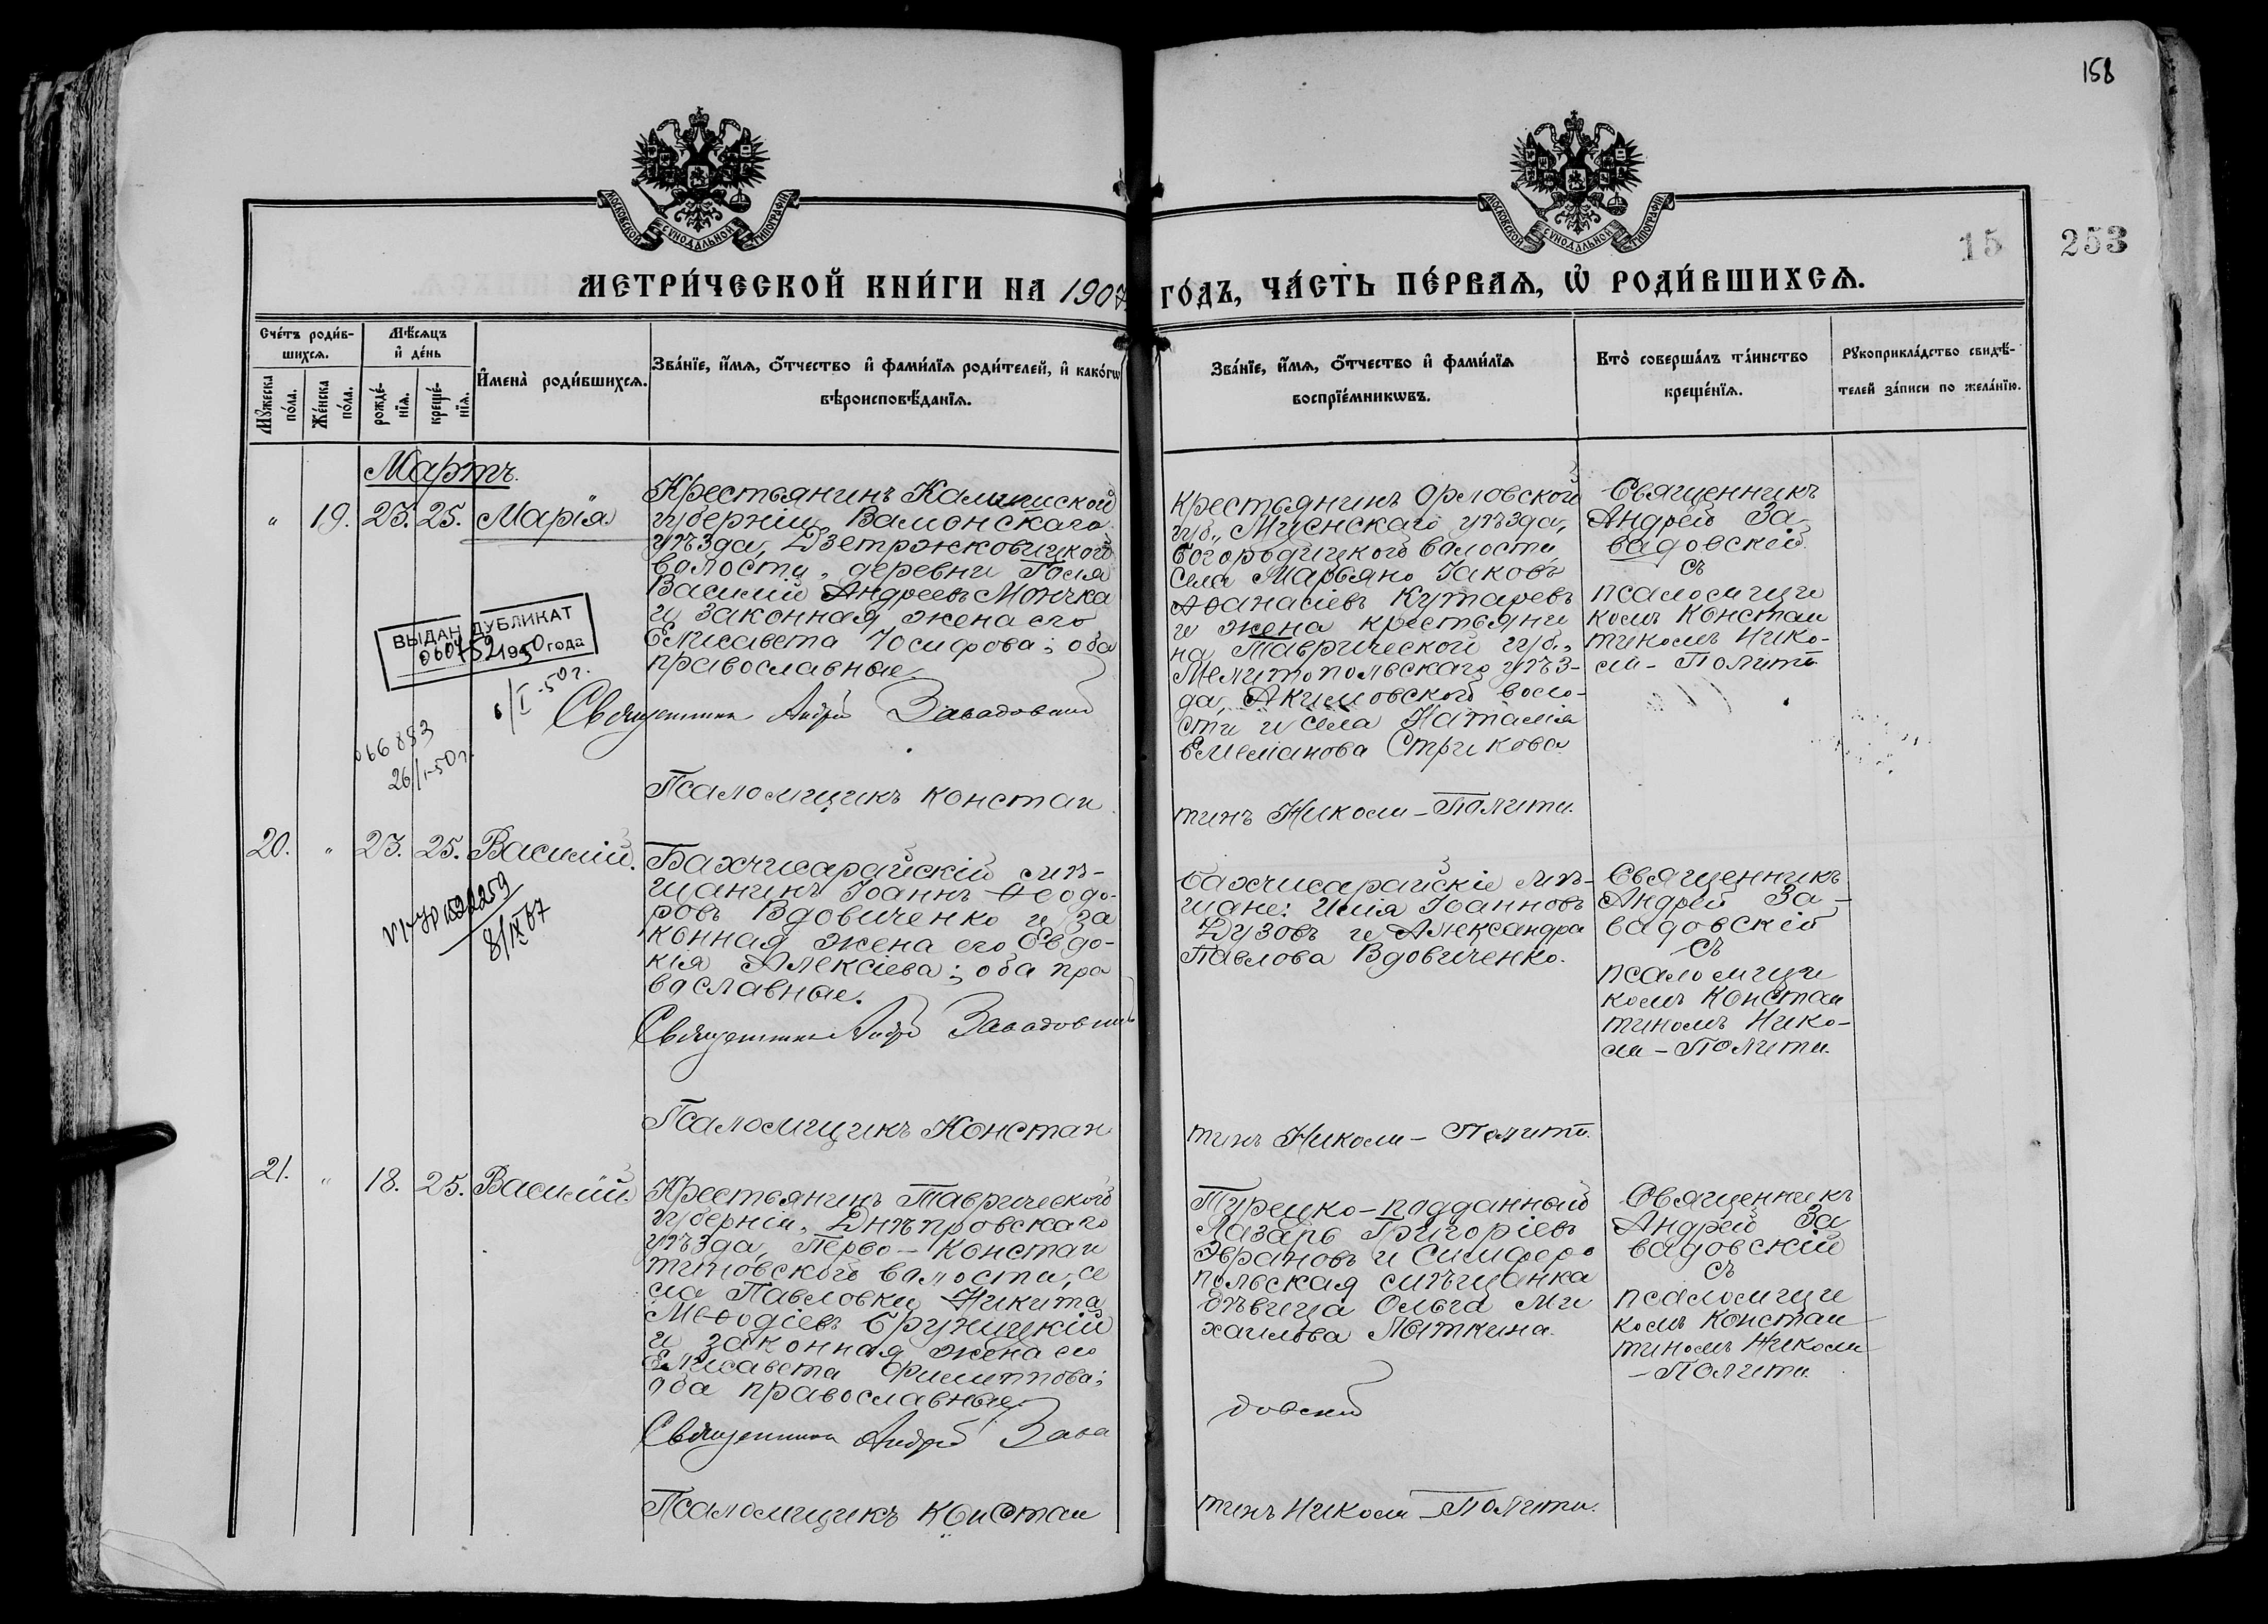 158
МОСКОВСКОЙ СУНОДАЛЬНОЙ ТИПОГРАФІИ
МОСКОВСКОЙ СУНОДАЛЬНОЙ ТИПОГРАФІИ
15
253
МЕТРИ́ЧЕСКОЙ КНИ́ГИ НА 1907 ГО́ДЪ, ЧА́СТЬ ПЕ́РВАѦ, Ѡ҆ РОДИ́ВШИХСѦ.
Сче́тъ роди́в-
шихсѧ.
Мѣ́сѧцъ
и҆ де́нь
Мꙋ́жеска
по́ла.
Же́нска
по́ла.
рожде́-
нїѧ.
креще́-
нїѧ.
И҆мена̀ роди́вшихсѧ.
Зва́нїе, и҆́мѧ, ѻ҆́тчество и҆ фами́лїѧ роди́телей, и҆ како́гѡ
вѣроисповѣ́данїѧ.
Зва́нїе, и҆́мѧ, ѻ҆́тчество и҆ фами́лїѧ
воспрїе́мникѡвъ.
Кто̀ соверша́лъ та́инство
креще́нїѧ.
Рꙋкоприкла́дство свидѣ́-
телей за́писи по жела́нїю.
Мартъ.
" 19. 23. 25. Марія.
Крестьянинъ
губерніи,
уѣзда,
волости, деревни
Василій Андреевъ Мончка
и законная жена его
Елисавета Іосифова; оба
православные.
Священникъ Андрей Завадовскій
Псаломщикъ Констан
ВЫДАН ДУБЛИКАТ
1950 года
6/I-50 г.
066883
26/I-50 г.
Крестьянинъ Орловской
губ., Мценскаго уѣзда,
Богородицкой волости
села Марьяно Іаковъ
Аѳанасіевъ Кутаревъ
и жена крестьяни
на Таврической губ.,
Мелитопольскаго уѣз-
да, Акимовской воло-
сти и села Наталія
Емеліанова Стрикова.
тинъ Николи-Полити.
Священникъ
Андрей За-
вадовскій
съ
псаломщи
комъ Констан
тиномъ Нико-
ли-Полити
20. " 23. 25. Василій.
8/IX 67
Бахчисарайскій мѣ-
щанинъ Іоаннъ Ѳеодо-
ровъ Вдовиченко и за
конная жена его Евдо-
кія Алексіева; оба пра
вославные.
Священникъ Андрей Завадовскій
Псаломщикъ Констан
Бахчисарайскіе мѣ-
щане: Илія Іоанновъ
Дузовъ и Александра
Павлова Вдовиченко.
тинъ Николи-Полити.
Священникъ
Андрей За-
вадовскій
съ
псаломщи
комъ Констан
тиномъ Нико-
ли-Полити.
21. " 18. 25. Василій.
Крестьянинъ Таврической
губерніи, Днѣпровскаго
уѣзда, Перво-Констан
тиновской волости, се
ла Павловки Никита
Меѳодіевъ Бружицкій
и законная жена его
Елисавета Филиппова;
оба православные.
Священникъ Андрей Зава
Псаломщикъ Констан
Турецко-подданный
Лазарь Григоріевъ
Эврановъ и Симферо
польская мѣщанка
дѣвица Ольга Ми
хаилова Лыткина.
довскій
тинъ Николи-Полити.
Священникъ
Андрей За
вадовскій
съ
псаломщи
комъ Констан
тиномъ Николи
-Полити.